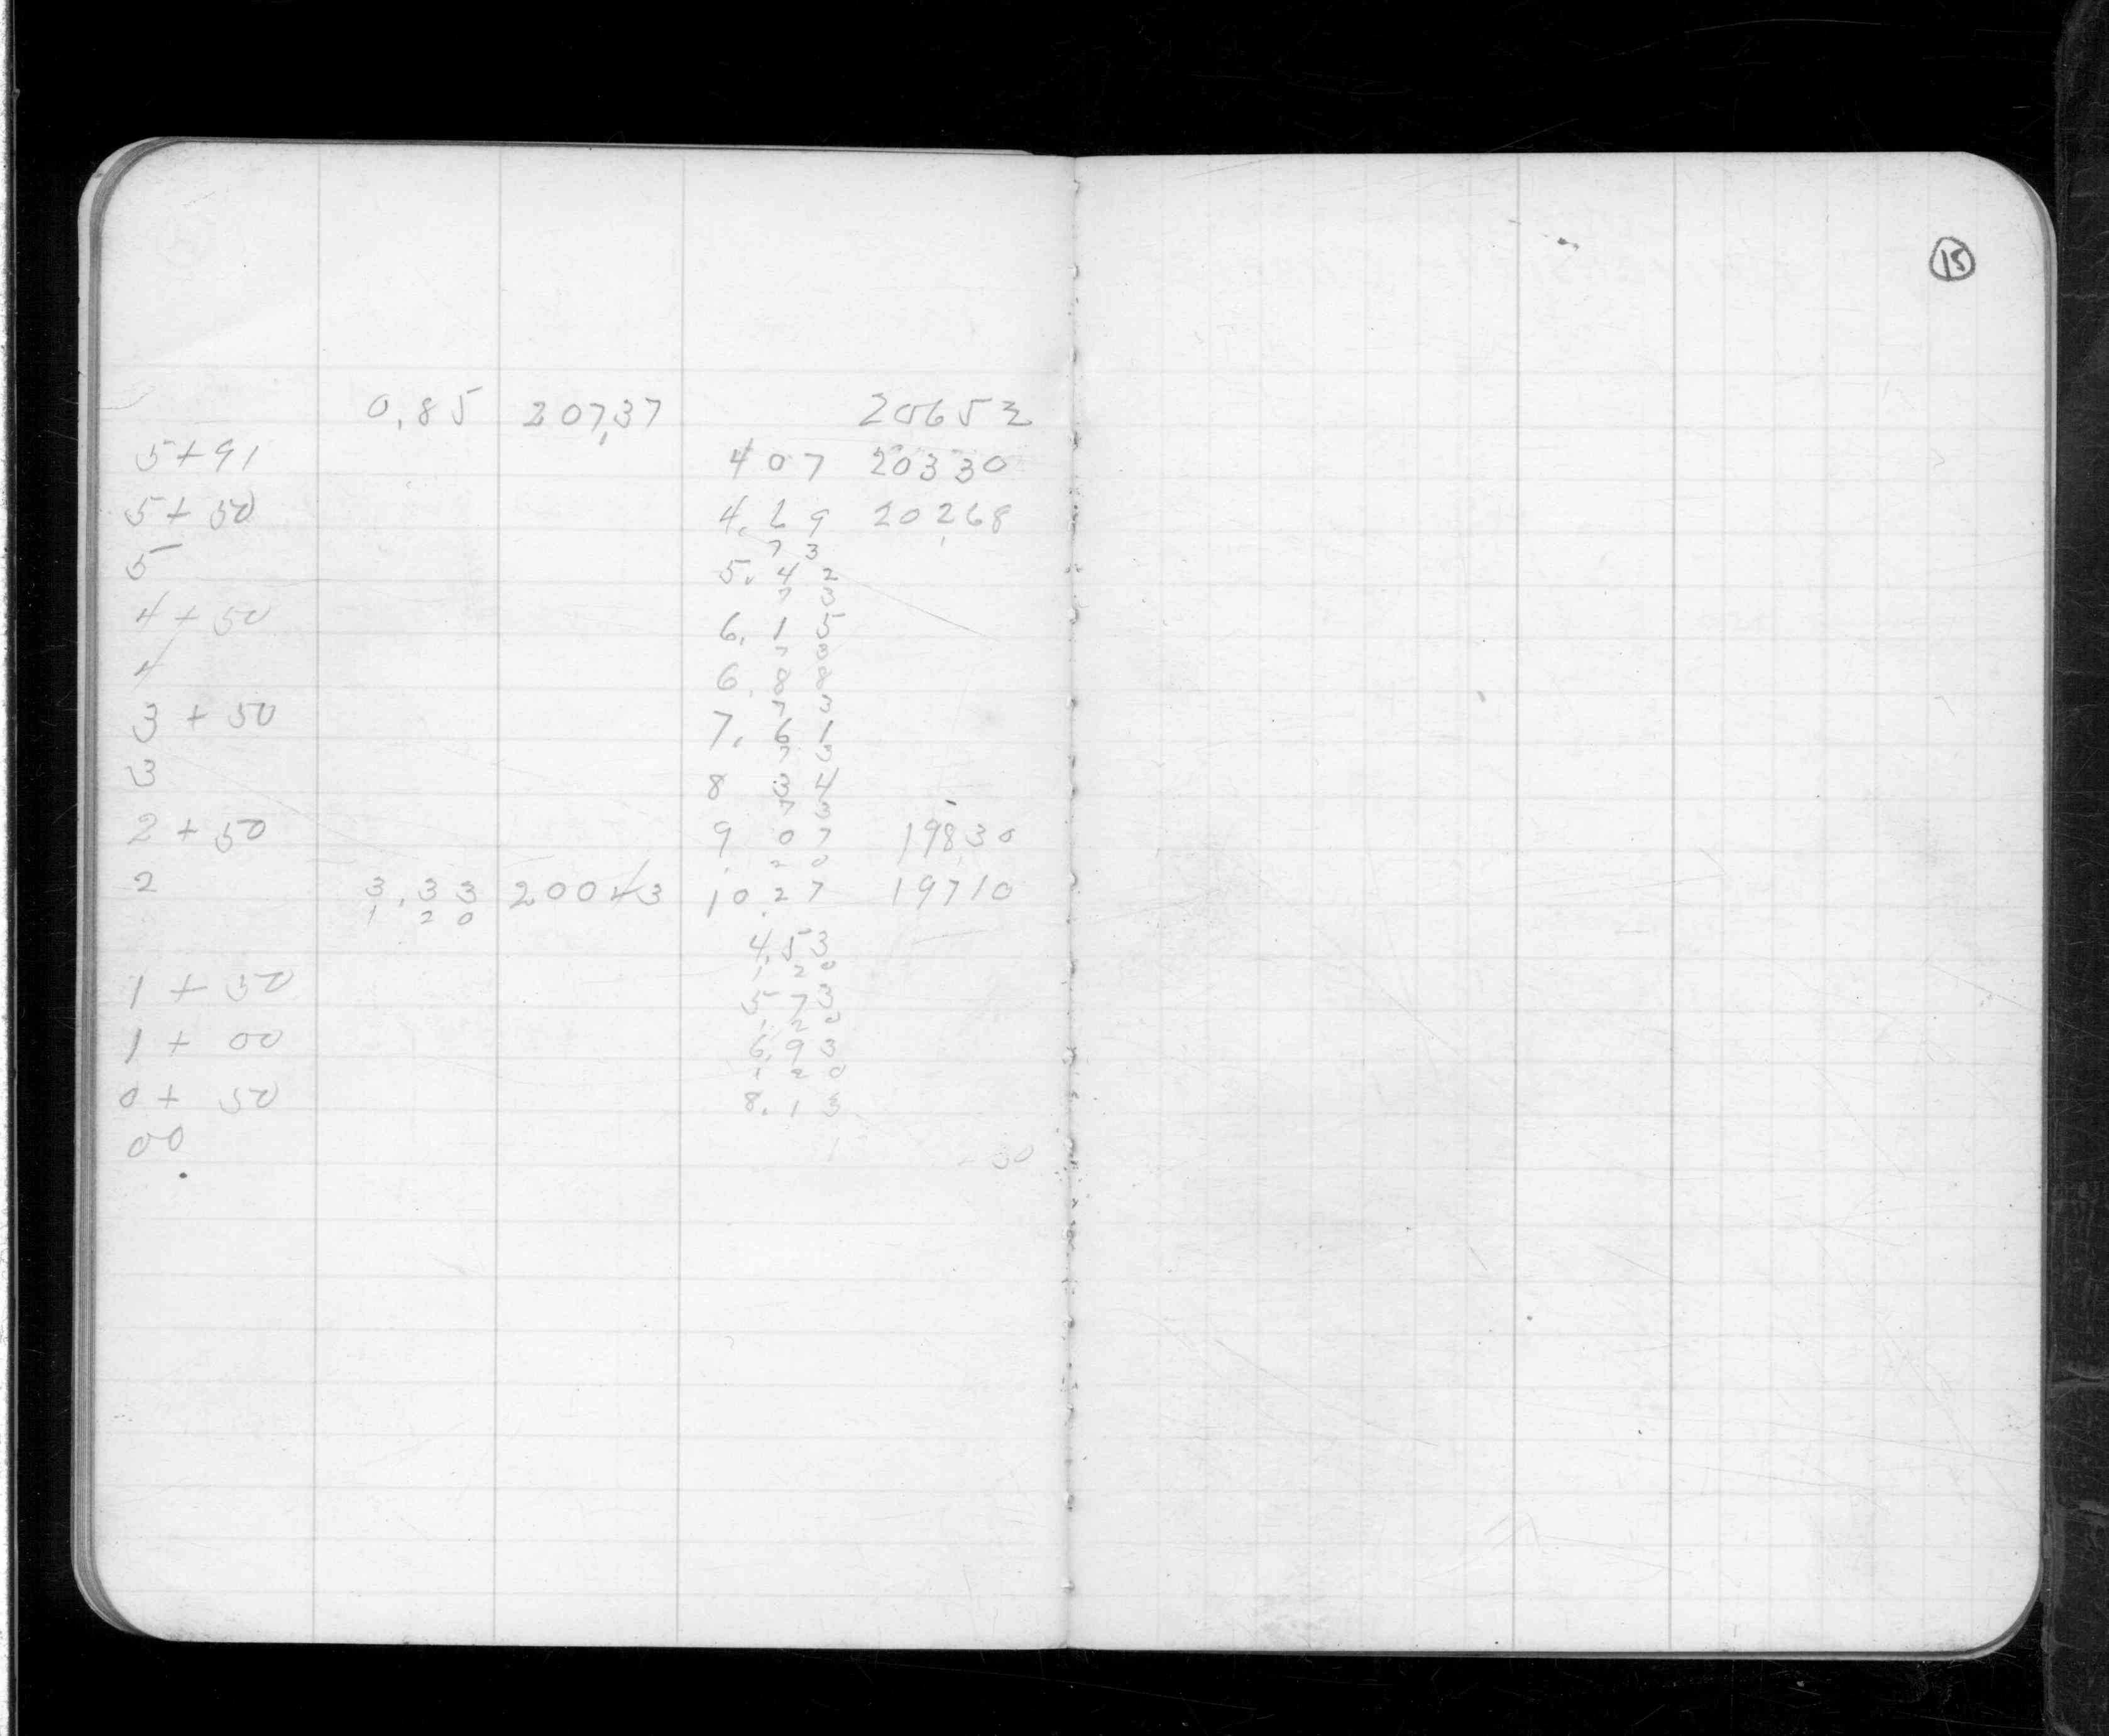 15
0.85 207.37 20652
5+91 407 20330
5+50 4.69 20268
7 3
5 5.42
7 3
4+50 6.15
7 3
4 6.88
7 3
3+50 7.61
7 3
3 8 34
7 3
2+50 9 07 19830
1.20
2 3.33 20043 10.27 19710
1 20
4.53
1 20
1+50 5 73
1.20
1+00 6.93
1 20
0+50 8.13
00 30